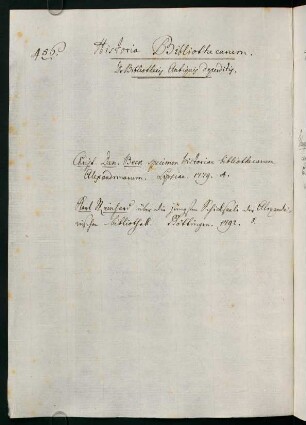 486.
Historia Bibliothecarum.
De Bibliothecis Antiquis deperditis.
Christ. Dan. Beck specimen historiae bibliothecarum
Alexandrinarum. Lipsiae 1779. 4.
Karl Reinhard über die jüngsten Schicksale der Alexandri-
nischen Bibliothek. Göttingen. 1792. 8.